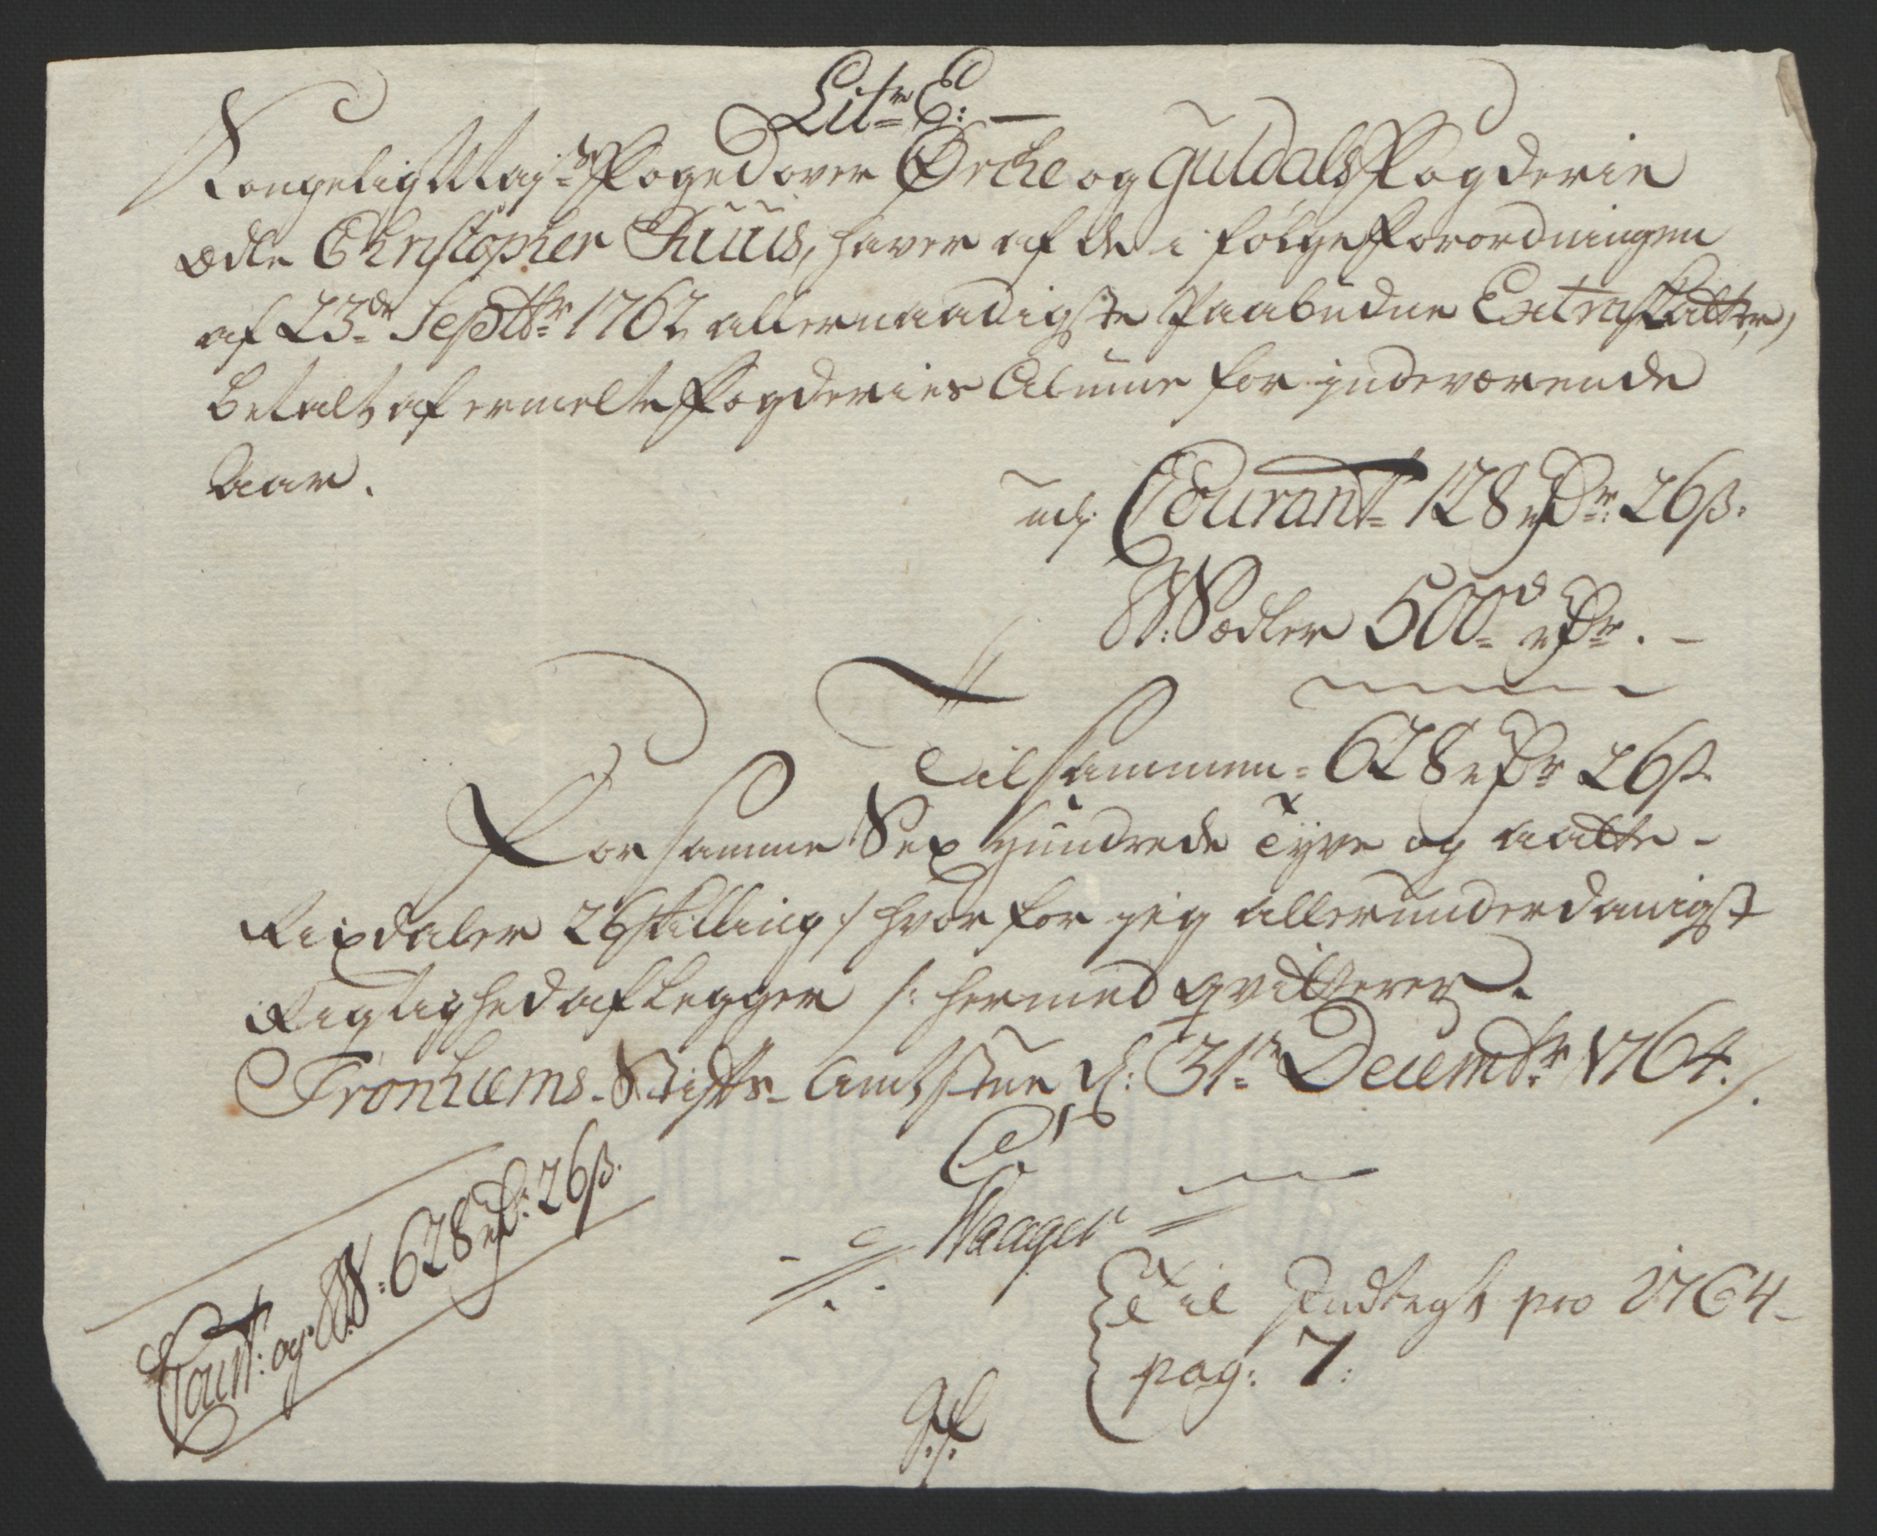 Litr E: —
Kongelig Mayts Foged over Ørche og Guldals Fogderie
ædle Christopher Juuls, haver af de i følge Forordningen
af 23de Septbr 1762 allernaadigste Paabudne Extraskatter,
betalt af ermelte Fogderies Almue for indeværende
Aar.
udj Courant 128 rdr: 26 ß.
B: Sædler 500de rdr. —
Tilsammen = 628 rdr 26 ß.
For samme Sex Hundrede Tyve og aatte -
Rixdaler 26 skilling :/ hvor for jeg allerunderdanigst
Rigtighed aflegger /: hermed qvitterer.
Tronhiems Stifts Amtstue d: 31te Decembr 1764.
Waager
Court: og B.S. 628 rd: 26 ß.
Til Indtegt pro 1764
pag: 7: